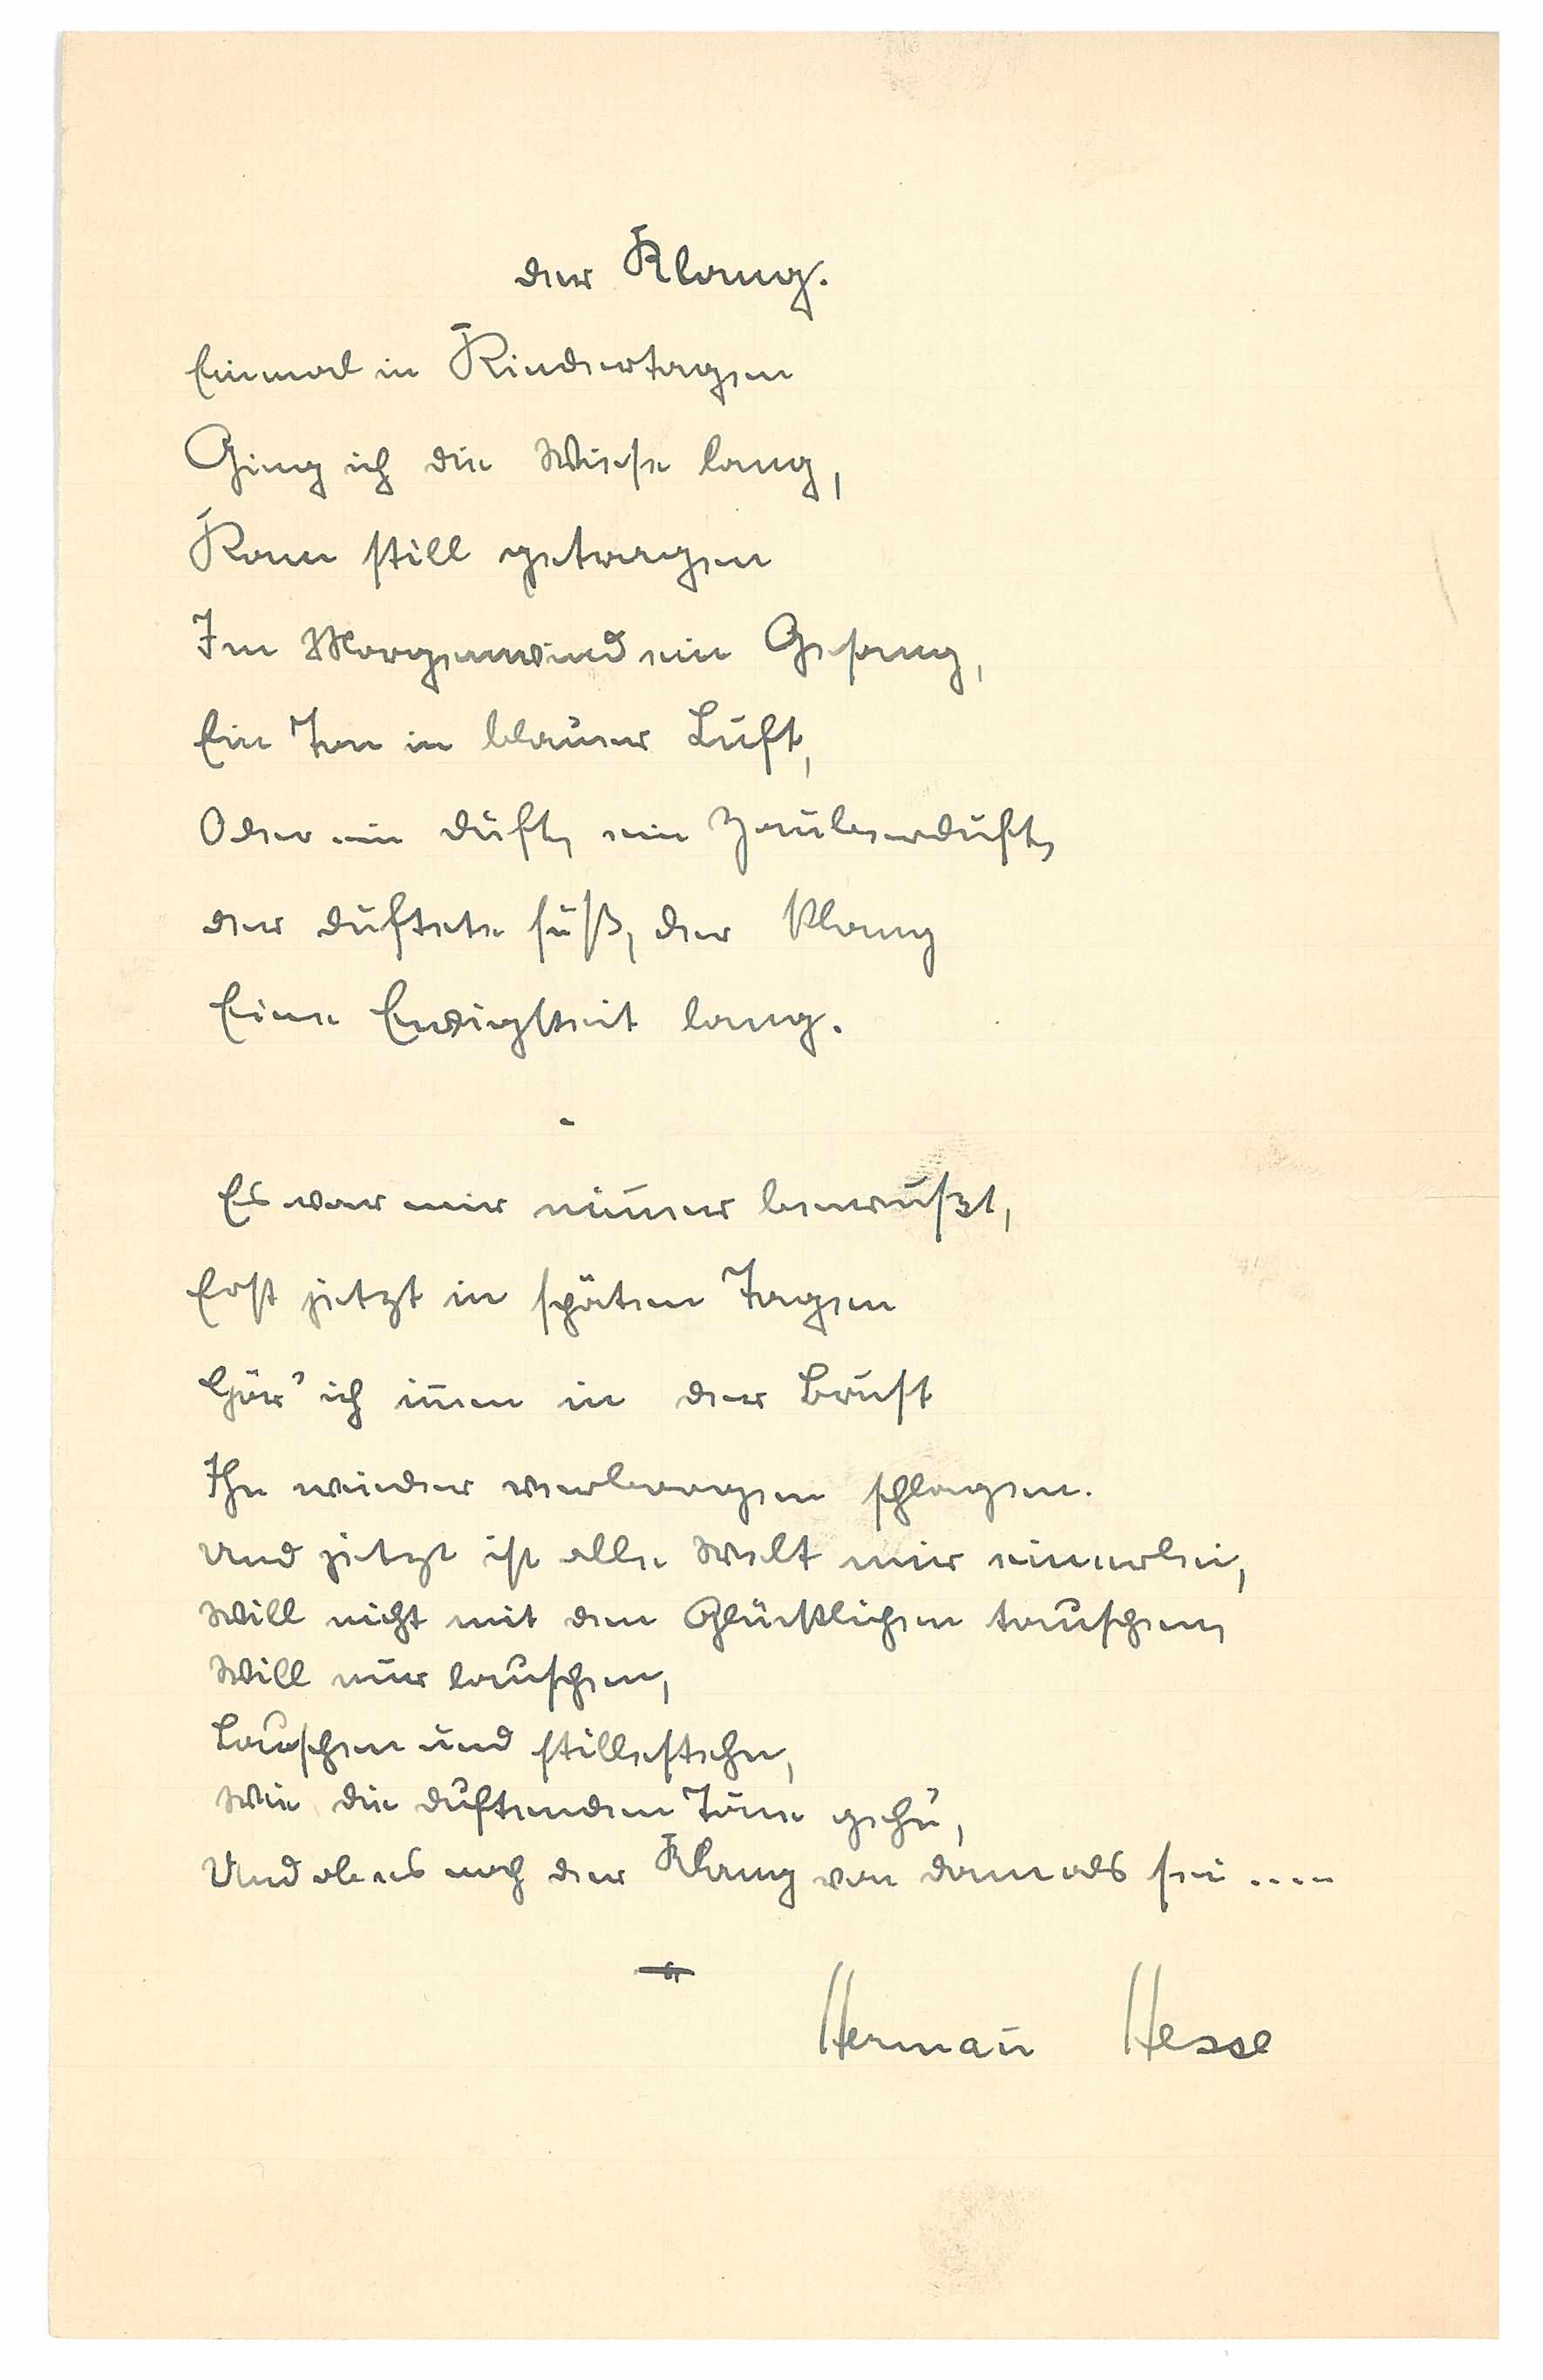 Der Klang.
Einmal in Kindertagen
Ging ich die Wiese lang,
Kam still getragen
Im Morgenwind ein Gesang,
Ein Ton in blauer Luft,
Oder ein Duft, ein Zauberduft,
Der duftete süß, der klang
Eine Ewigkeit lang.
-
Es war mir nim̄er bewußt,
Erst jetzt in späten Tagen
Hör' ich in̄en in der Brust
Ihn wieder verborgen schlagen.
Und jetzt ist alle Welt mir einerlei,
Will nicht mit den Glücklichen tauschen,
Will nur lauschen,
Lauschen und stillestehn,
Wie die duftenden Töne gehn,
Und ob es noch der Klang von damals sei ....
Herman̄ Hesse